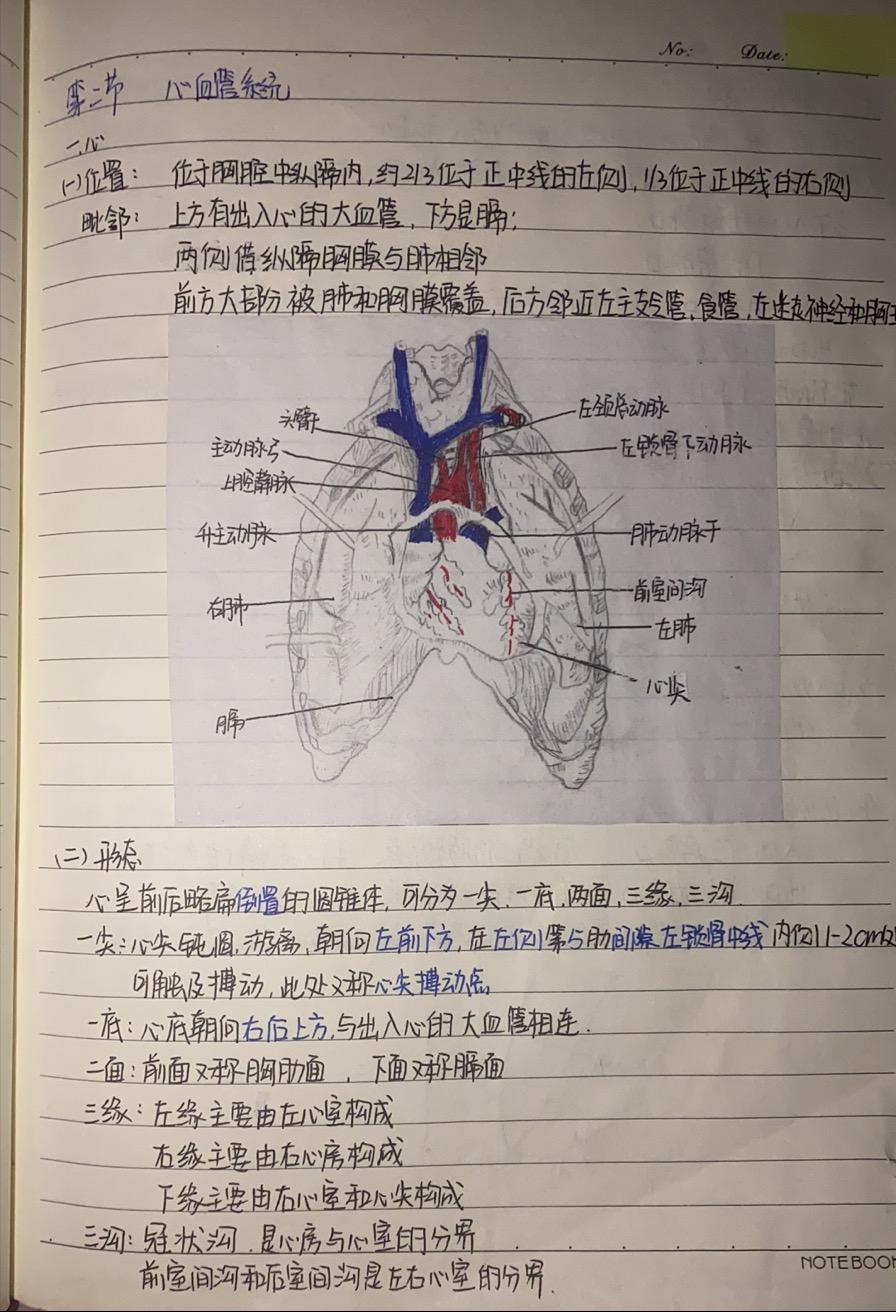 No: Date:
第二节 心血管系统
一、心
(一)位置: 位于胸腔中纵隔内,约2/3位于正中线的左侧,1/3位于正中线的右侧
毗邻: 上方有出入心的大血管,下方是膈;
两侧借纵隔胸膜与肺相邻
前方大部分被肺和胸膜覆盖,后方邻近左主支气管,食管,左迷走神经和胸主
头臂干 左颈总动脉
主动脉弓 左锁骨下动脉
上腔静脉
升主动脉 肺动脉干
右肺 前室间沟
左肺
心尖
膈
(二)形态
心呈前后略扁倒置的圆锥体,可分为一尖、一底,两面,三缘,三沟.
一尖:心尖钝圆,游离,朝向左前下方,在左侧第5肋间隙左锁骨中线内侧1-2cm处
可触及搏动,此处又称心尖搏动点
一底:心底朝向右后上方,与出入心的大血管相连.
二面:前面又称胸肋面,下面又称膈面
三缘:左缘主要由左心室构成
右缘主要由右心房构成
下缘主要由右心室和心尖构成
三沟:冠状沟.是心房与心室的分界
前室间沟和后室间沟是左右心室的分界.
NOTEBOOK